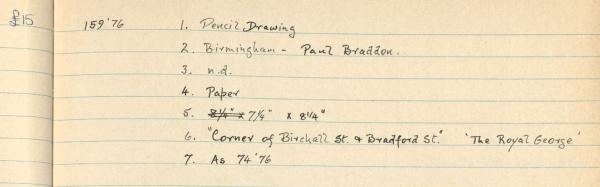 £15 159'76 1. Pencil Drawing
2. Birmingham - Paul Braddon.
3. n.d.
4. Paper
5. 8¼" x 7¼" x 8¼"
6. "Corner of Birchall St. & Bradford St." 'The Royal George'
7. As 74'76